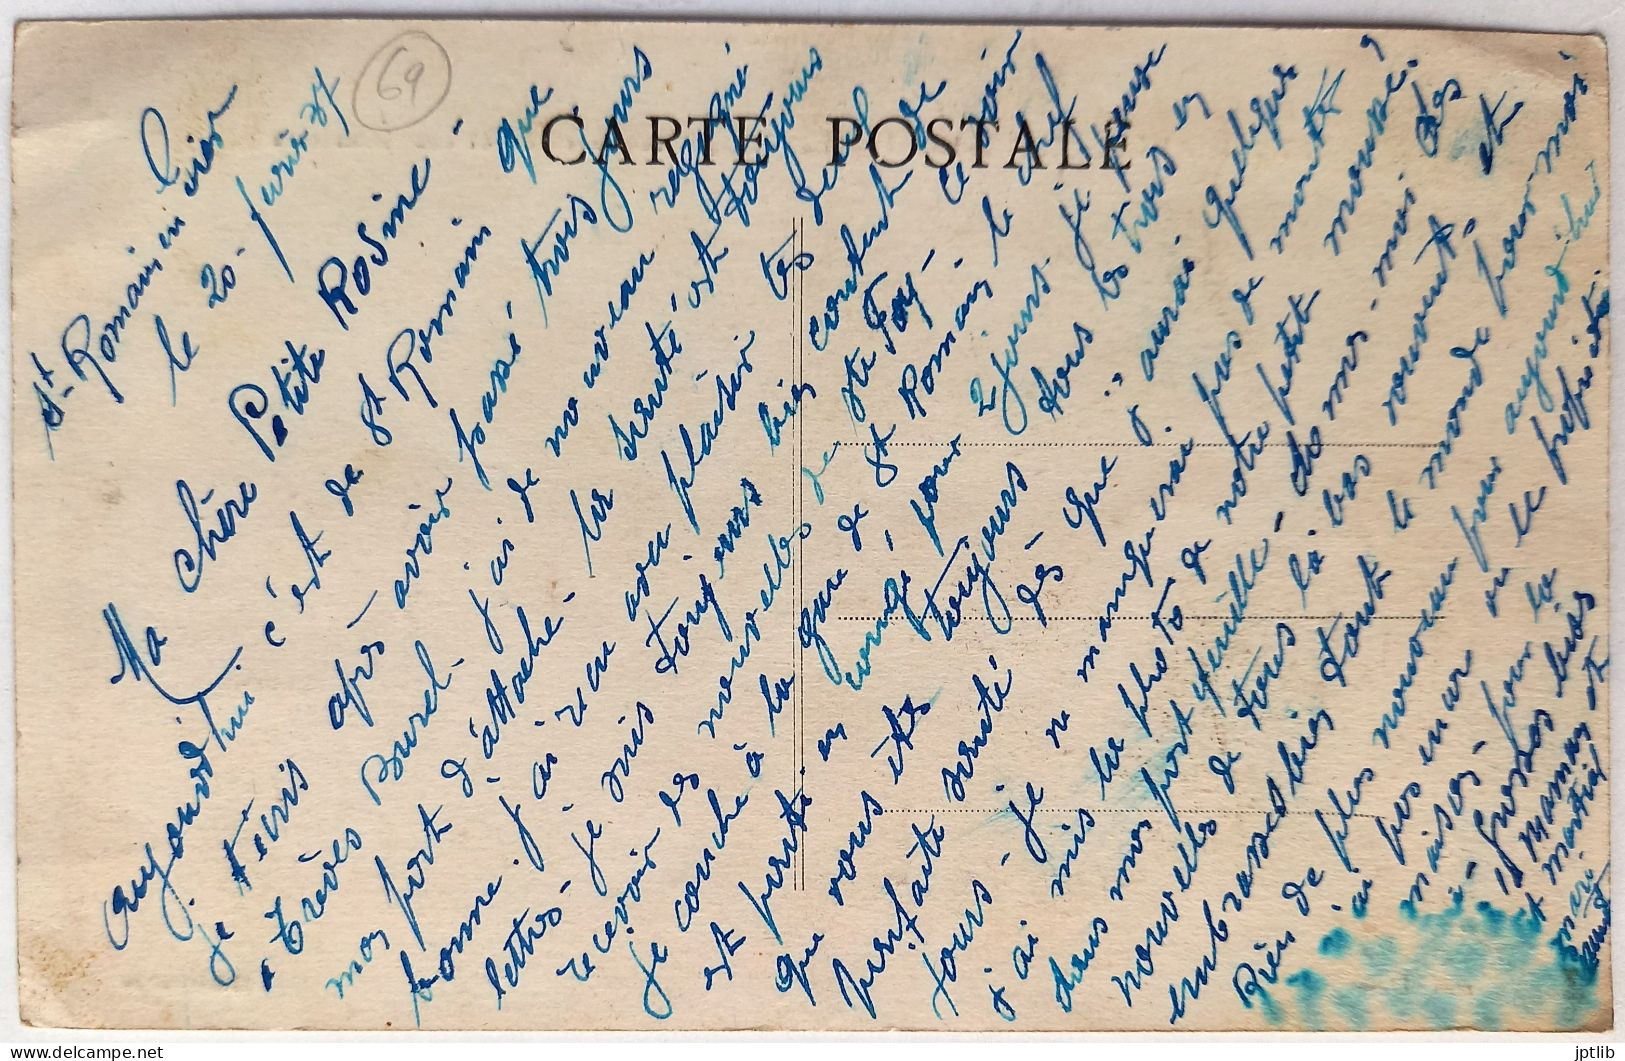 69
CARTE POSTALE
St Romain en Gier
le 20 février 37
Ma chère Petite Rosine
aujourd'hui c'est de St Romain que
je t'écris après avoir passé trois jours
à Trèves Burel j'ai de nouveau rejoint
mon port d'attache. la santé est toujours
bonne. j'ai reçu avec plaisir tes deux
lettres. je suis toujours bien content de
recevoir des nouvelles de Ste Foy. Ce soir
je couche à la gare de St Romain le chef
est parti en congé pour 2 jours. je pense
que vous êtes toujours tous les trois en
parfaite santé dès que j'aurai quelques
jours je ne manquerai pas de monter
j'ai mis la photo de notre petit mousse
dans mon portefeuille. donnes-moi des
nouvelles de tous là bas souvent. et
embrasses bien tout le monde pour moi
Rien de plus nouveau pour aujourd'hui
j'ai pas encore vu le propriétaire
maison pour la
Grosses bises
à Maman et
et Martial